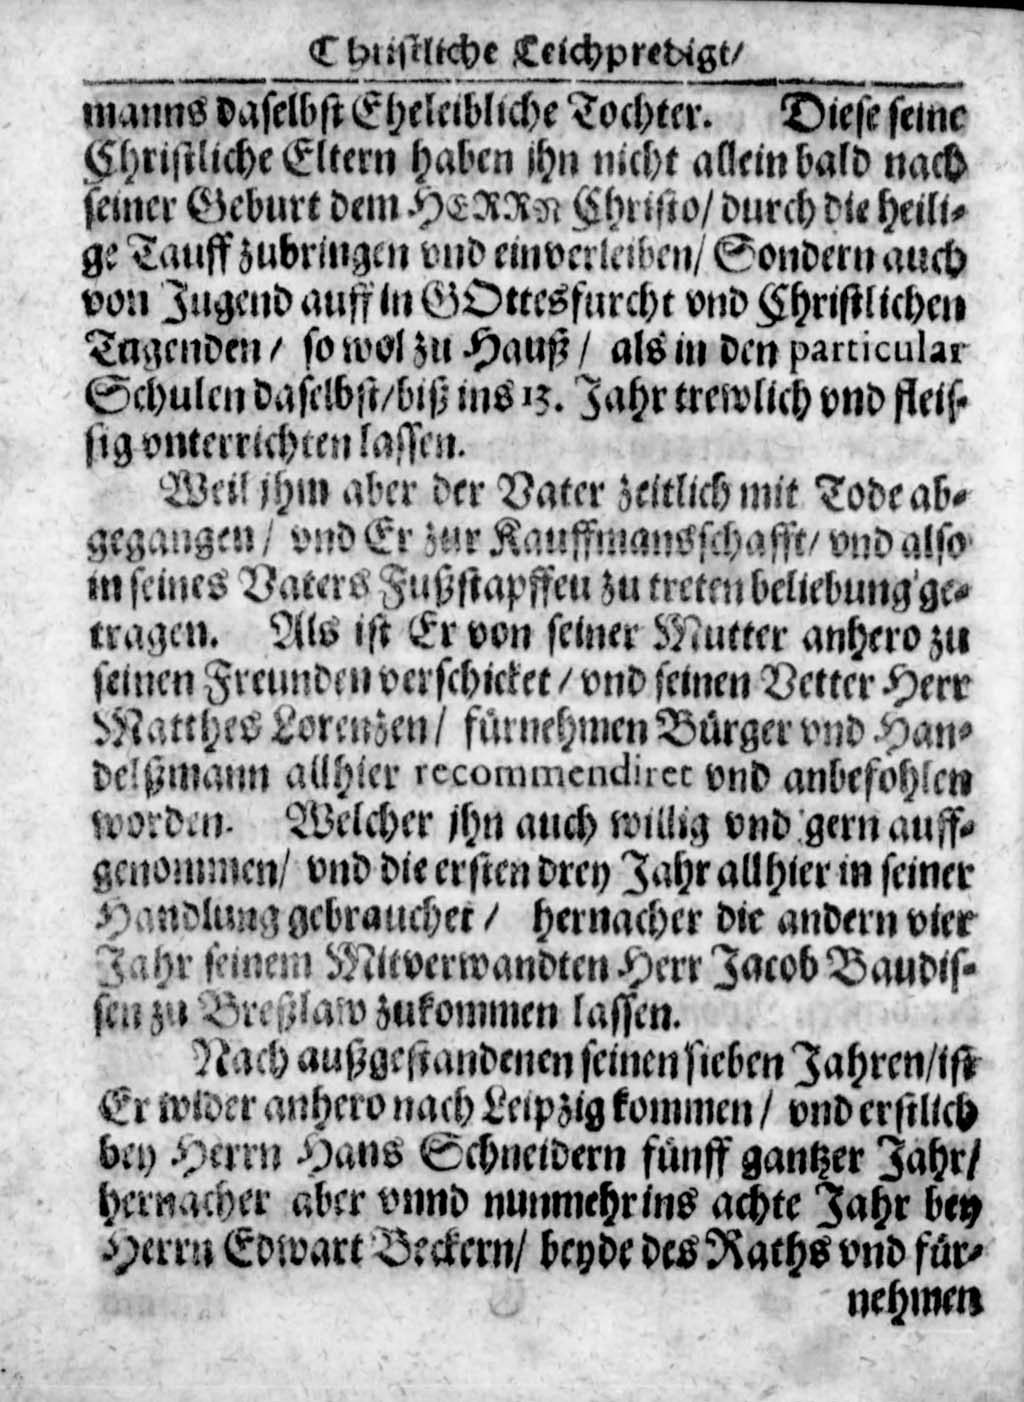 Christliche Leichpredigt/
manns daselbst Eheleibliche Tochter. Diese seine
Christliche Eltern haben jhn nicht allein bald nach
seiner Geburt dem HERRN Christo/ durch die heili-
ge Tauff zubringen vnd einverleiben/ Sondern auch
von Jugend auff in GOttesfurcht vnd Christlichen
Tugenden/ so wol zu Hauß/ als in den particular
Schulen daselbst/biß ins 13. Jahr trewlich vnd fleis-
sig vnterrichten lassen.
Weil jhm aber der Vater zeitlich mit Tode ab-
gegangen/ vnd Er zur Kauffmansschafft/ vnd also
in seines Vaters Fußstapffen zu treten beliebung ge-
tragen. Als ist Er von seiner Mutter anhero zu
seinen Freunden verschicket/ vnd seinen Vetter Herr
Matthes Lorenzen/ fürnehmen Bürger vnd Han-
delßmann allhier recommendiret vnd anbefohlen
worden. Welcher jhn auch willig vnd gern auff-
genommen/ vnd die ersten drey Jahr allhier in seiner
Handlung gebrauchet/ hernacher die andern vier
Jahr seinem Mitverwandten Herr Jacob Baudis-
sen zu Breßlaw zukommen lassen.
Nach außgestandenen seinen sieben Jahren/ist
Er wider anhero nach Leipzig kommen/ vnd erstlich
bey Herrn Hans Schneidern fünff gantzer Jahr/
hernacher aber vnnd nunmehr ins achte Jahr bey
Herrn Edwart Beckern/ beyde des Raths vnd für-
nehmen